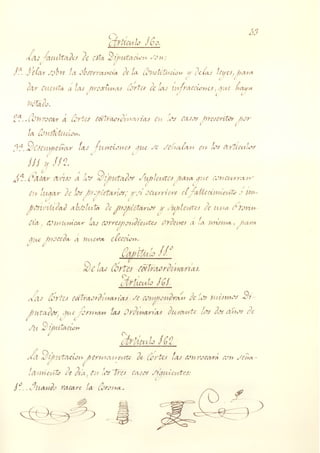 33
Artículo 160.
Las facultades de esta Diputacion son:
1ª. Velar sobre la observancia de la Constitucion y de las leyes, para
dar cuenta á las proximas Cortes de las infracciones, que haya
notado.
2ª. Convocar á Cortes extraordinarias en los casos prescritos por
la Constitucion.
3ª. Desempeñar las funciones que se señalan en los artículos
111 y 112.
4ª. Pasar aviso á los Diputados suplentes para que concurran
en lugar de los propietarios; y si ocurriere el fallecimiento ó im-
posibilidad absoluta de propietarios y suplentes de una Provin-
cia, comunicar las correspondientes ordenes á la misma, para
que proceda á nueva eleccion.
Capítulo 11º
De las Cortes extraordinarias.
Artículo 161.
Las Cortes extraordinarias se compondrán de los mismos Di-
putados, que forman las ordinarias durante los dos años de
su Diputacion
Artículo 162.
La Diputacion permanente de Cortes las convocará con seña-
lamiento de dia, en los tres casos siguientes:
1º. Cuando vacare la Corona.